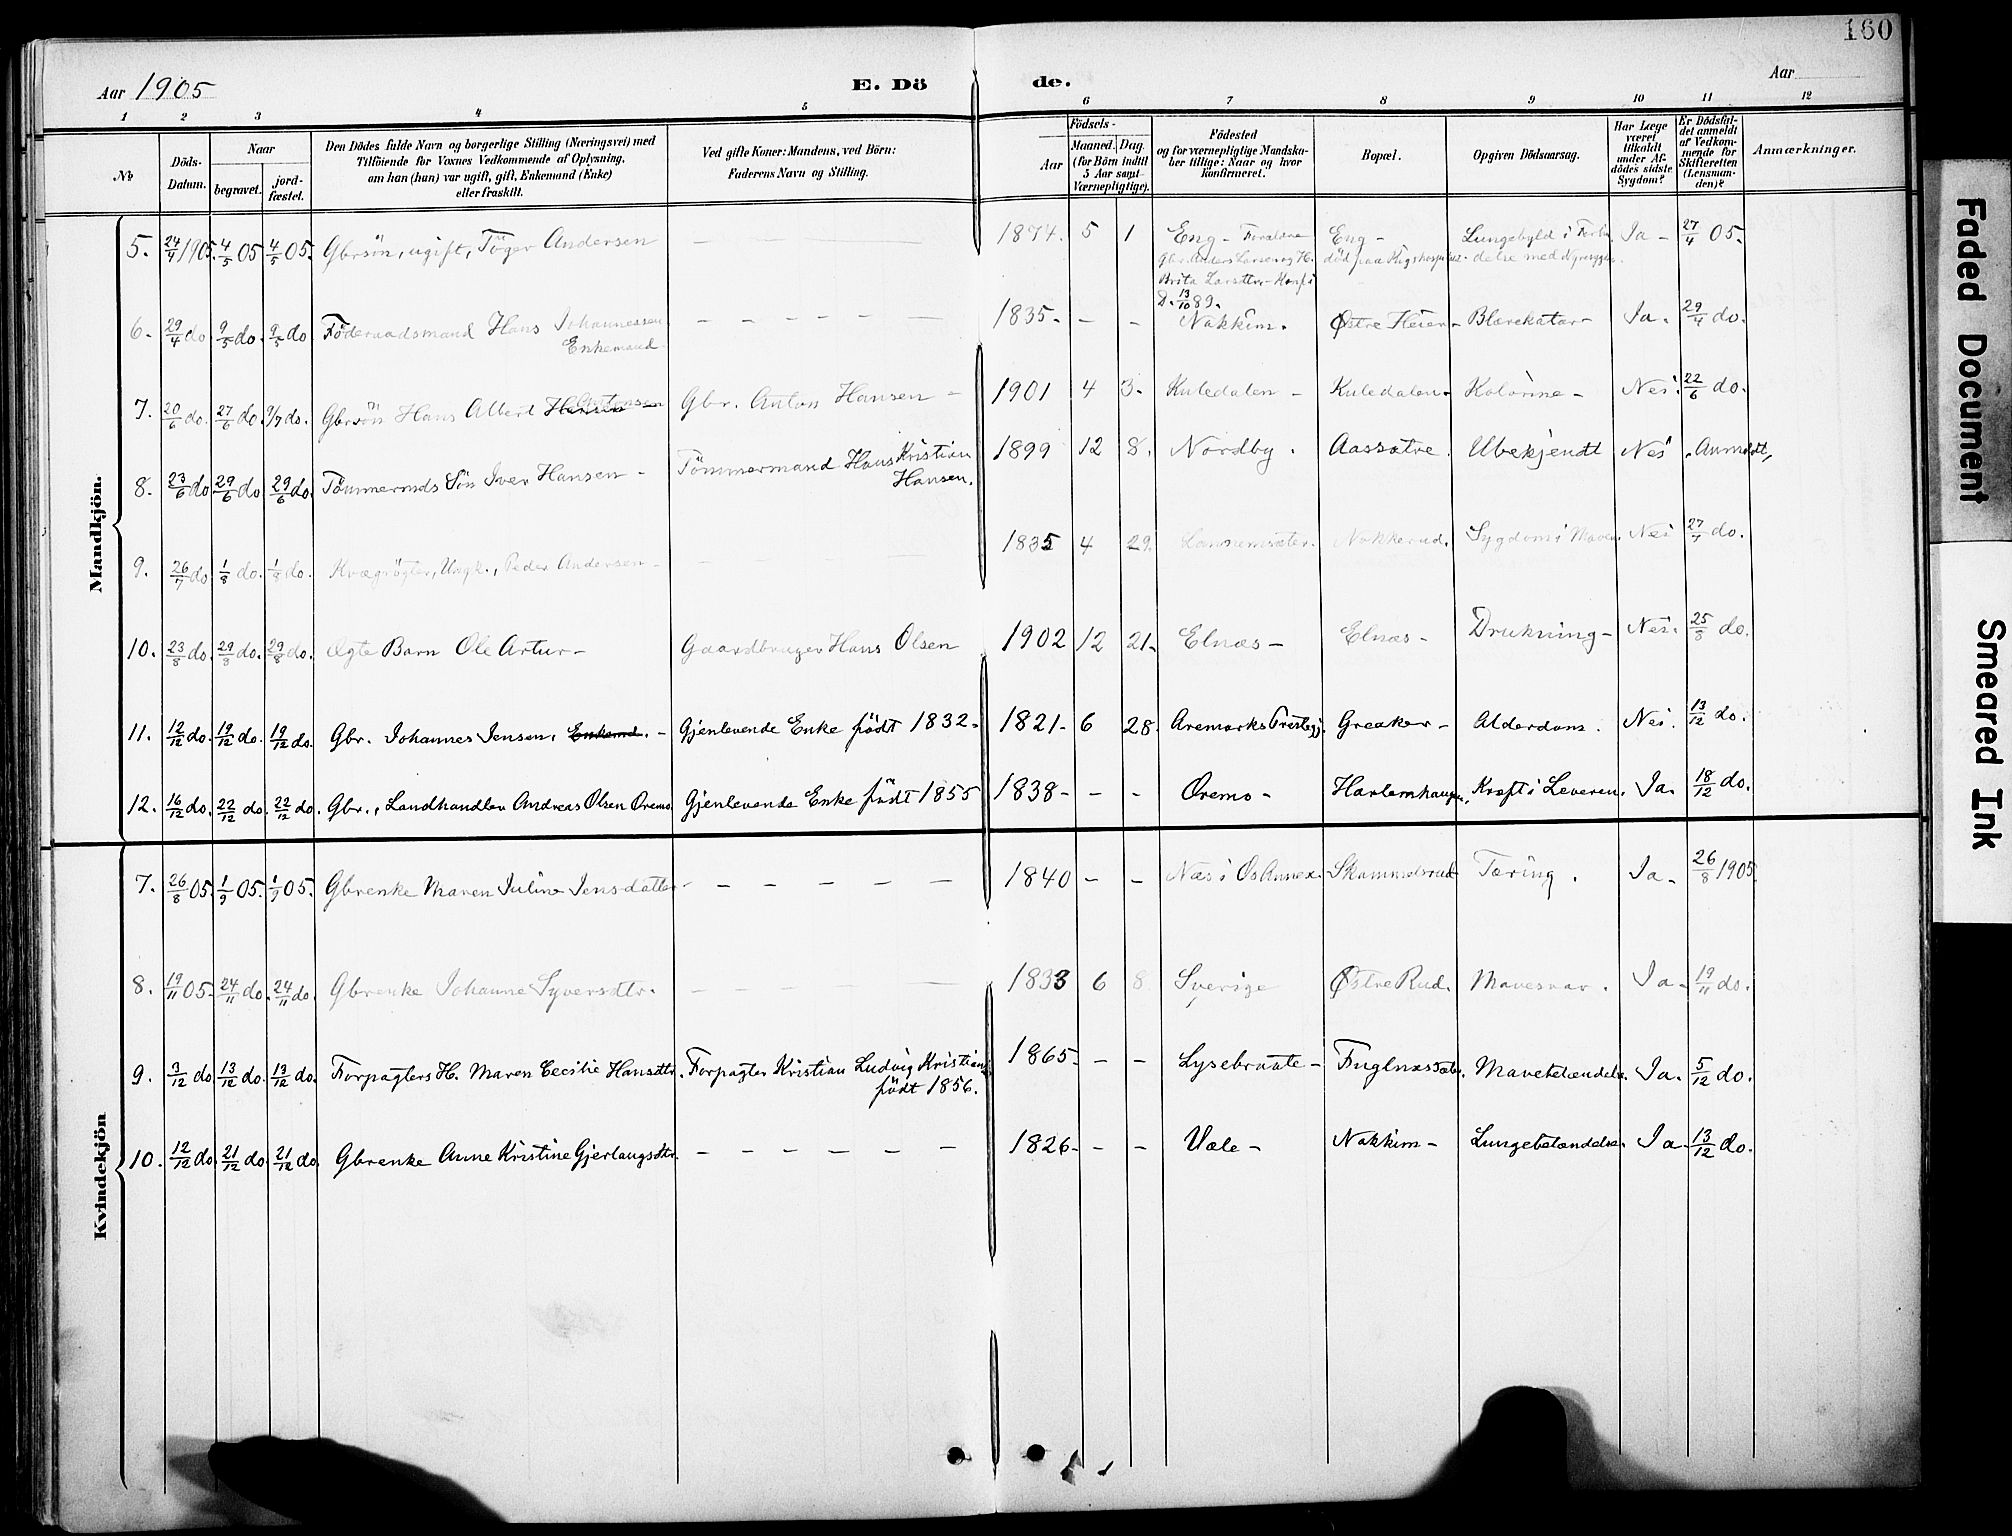 160
Aar 1905 E. Dö de. Aar
1 2 3 4 5 6 7 8 9 10 11 12
No
Döds-Datum.
Naar
begravet. jord-fæstet.
Den Dödes fulde Navn og borgerlige Stilling (Næringsvei) med
Tilföiende for Voxnes Vedkommende af Oplysning,
om han (hun) var ugift, gift, Enkemand (Enke)
eller fraskilt.
Ved gifte Koner: Mandens, ved Börn:
Faderens Navn og Stilling.
Födsels-
Aar Maaned. Dag.
(for Börn indtil
5 Aar samt
Værnepligtige).
Födested
og for værnepligtige Mandska-
ber tillige: Naar og hvor
konfirmeret.
Bopæl.
Opgiven Dödsaarsag.
Har Læge
været
tilkaldt
under Af-
dödes sidste
Sygdom?
Er Dödsfal-
det anmeldt
af Vedkom-
mende for
Skifteretten
(Lensman-
den)?
Anmærkninger.
Mandkjön.
5. 24/4 1905. 4/5 05 4/5 05. Gbrsön, ugift, Töger Andersen — 1874. 5 1 Eng - Forældre Eng - Lungebyld i Forbin Ja - 27/4 05.
Gbr. Anders Larsen og H. död paa Rigshospitalet. delse med
Brita Larsdtter - Konf. i
D. 13/10 89.
6. 29/4 do 9/5 do. 9/5 do Föderaadsmand Hans Johannessen - - - - - 1835. - - Nakkim. Østre Heier - Blærekatar - Ja. 29/4 do.
Enkemand
7. 20/6 do. 27/6 do. 9/7 do. Gbrsön Hans Albert Hansen Antonsen Gbr. Anton Hansen - 1901 4 3. Kuledalen - Kuledalen - Kolörine - Nei. 22/6 do.
8. 23/6 do 29/6 do 29/6 do. Tömmermds Sön Iver Hansen - Tömmermand Hans Kristian 1899 12 8. Nordby. Aassætre. Ubekjendt Nei. Anmeldt,
Hansen.
9. 26/7 do 1/8 do. 1/8 do. Kvægrögter, Ungk., Peder Andersen - 1835 4 29. Nakkerud. Sygdom i Maven. Nei 27/7 do.
10. 23/8 do. 29/8 do. 29/8 do. Ægte Barn Ole Artur - Gaardbruger Hans Olsen 1902 12 21. Elnæs - Elnæs - Drukning - Nei. 25/8 do.
11. 12/12 do. 19/12 do. 19/12 do. Gbr. Johannes Jensen. Enkemd. - Gjenlevende Enke födt 1832 - 1821 - 6 28. Aremarks Prestegj. Greaker - Alderdom. Nei. 13/12 do.
12. 16/12 do. 22/12 do. 22/12 do. Gbr., Landhandler Andreas Olsen Oremo Gjenlevende Enke födt 1855 1838 - - - Oremo - Harlemhaugen, Kræft i Leveren. Ja. 18/12 do.
Kvindekjön
7. 26/8 05. 1/9 05. 1/9 05. Gbrenke Maren Juline Jensdatter - - - - - 1840 - - Næs i Os Annex. Skammelsrud Tæring. Ja. 26/8 1905.
8. 19/11 05. 24/11 do 24/11 do. Gbrenke Johanne Syversdtr. 1833 6 8. Sverige Østre Rud. Mavesaar. Ja - 19/11 do.
9. 3/12 do 13/12 do. 13/12 do. Forpagters H. Maren Cecilie Hansdtr. Forpagter Kristian Ludvig Kristians 1865 - - - Lysebraate - Fuglenæssæter. Mavebetændelse. Ja. 5/12 do.
födt 1856.
10. 12/12 do 21/12 do 21/12 do. Gbrenke Anne Kristine Gjerlaugsdtr. - - - - - 1826 - - - Vale - Nakkim - Lungebetændelse. Ja - 13/12 do.
Faded Document
Smeared Ink